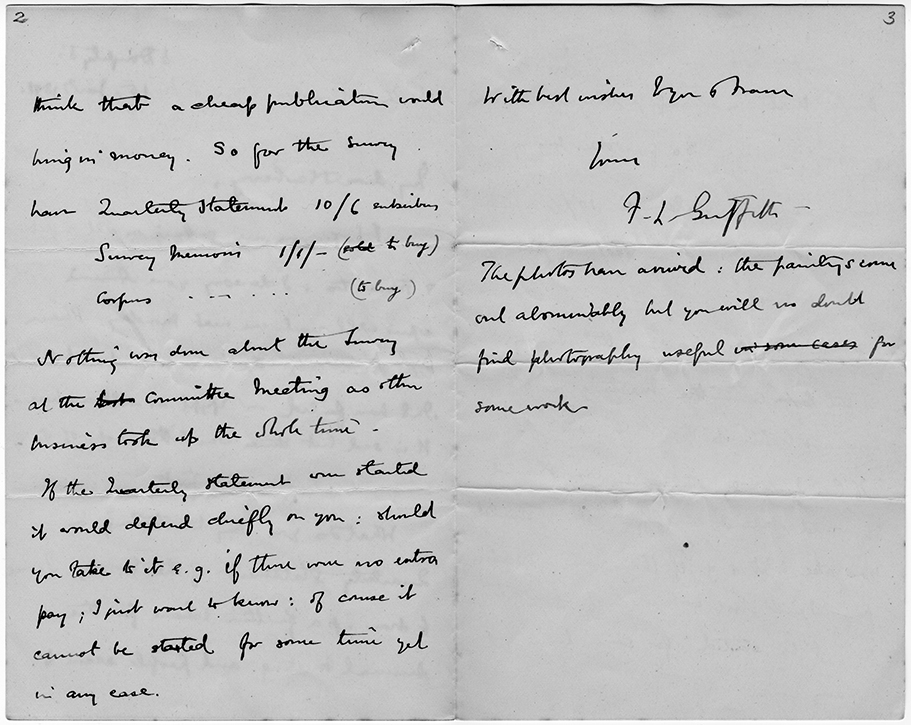 2
think that a cheap publication would
bring in money. So for the Survey
have Quarterly Statement 10/6 subscribers
Survey Memoirs 1/1/- ( to buy)
Corpus - - - . . . . (to buy)
Nothing was done about the Survey
at the Committee Meeting as other
business took up the whole time.
If the Quarterly Statement were started
it would depend chiefly on you: should
you take to it e.g. if there were no extra
pay; I just want to know: of course it
cannot be started for some time yet
in any case.
3
With best wishes
Yours
F. Ll. Griffith
The photos have arrived: the paintings come
out abominably but you will no doubt
find photography useful in some cases for
some work